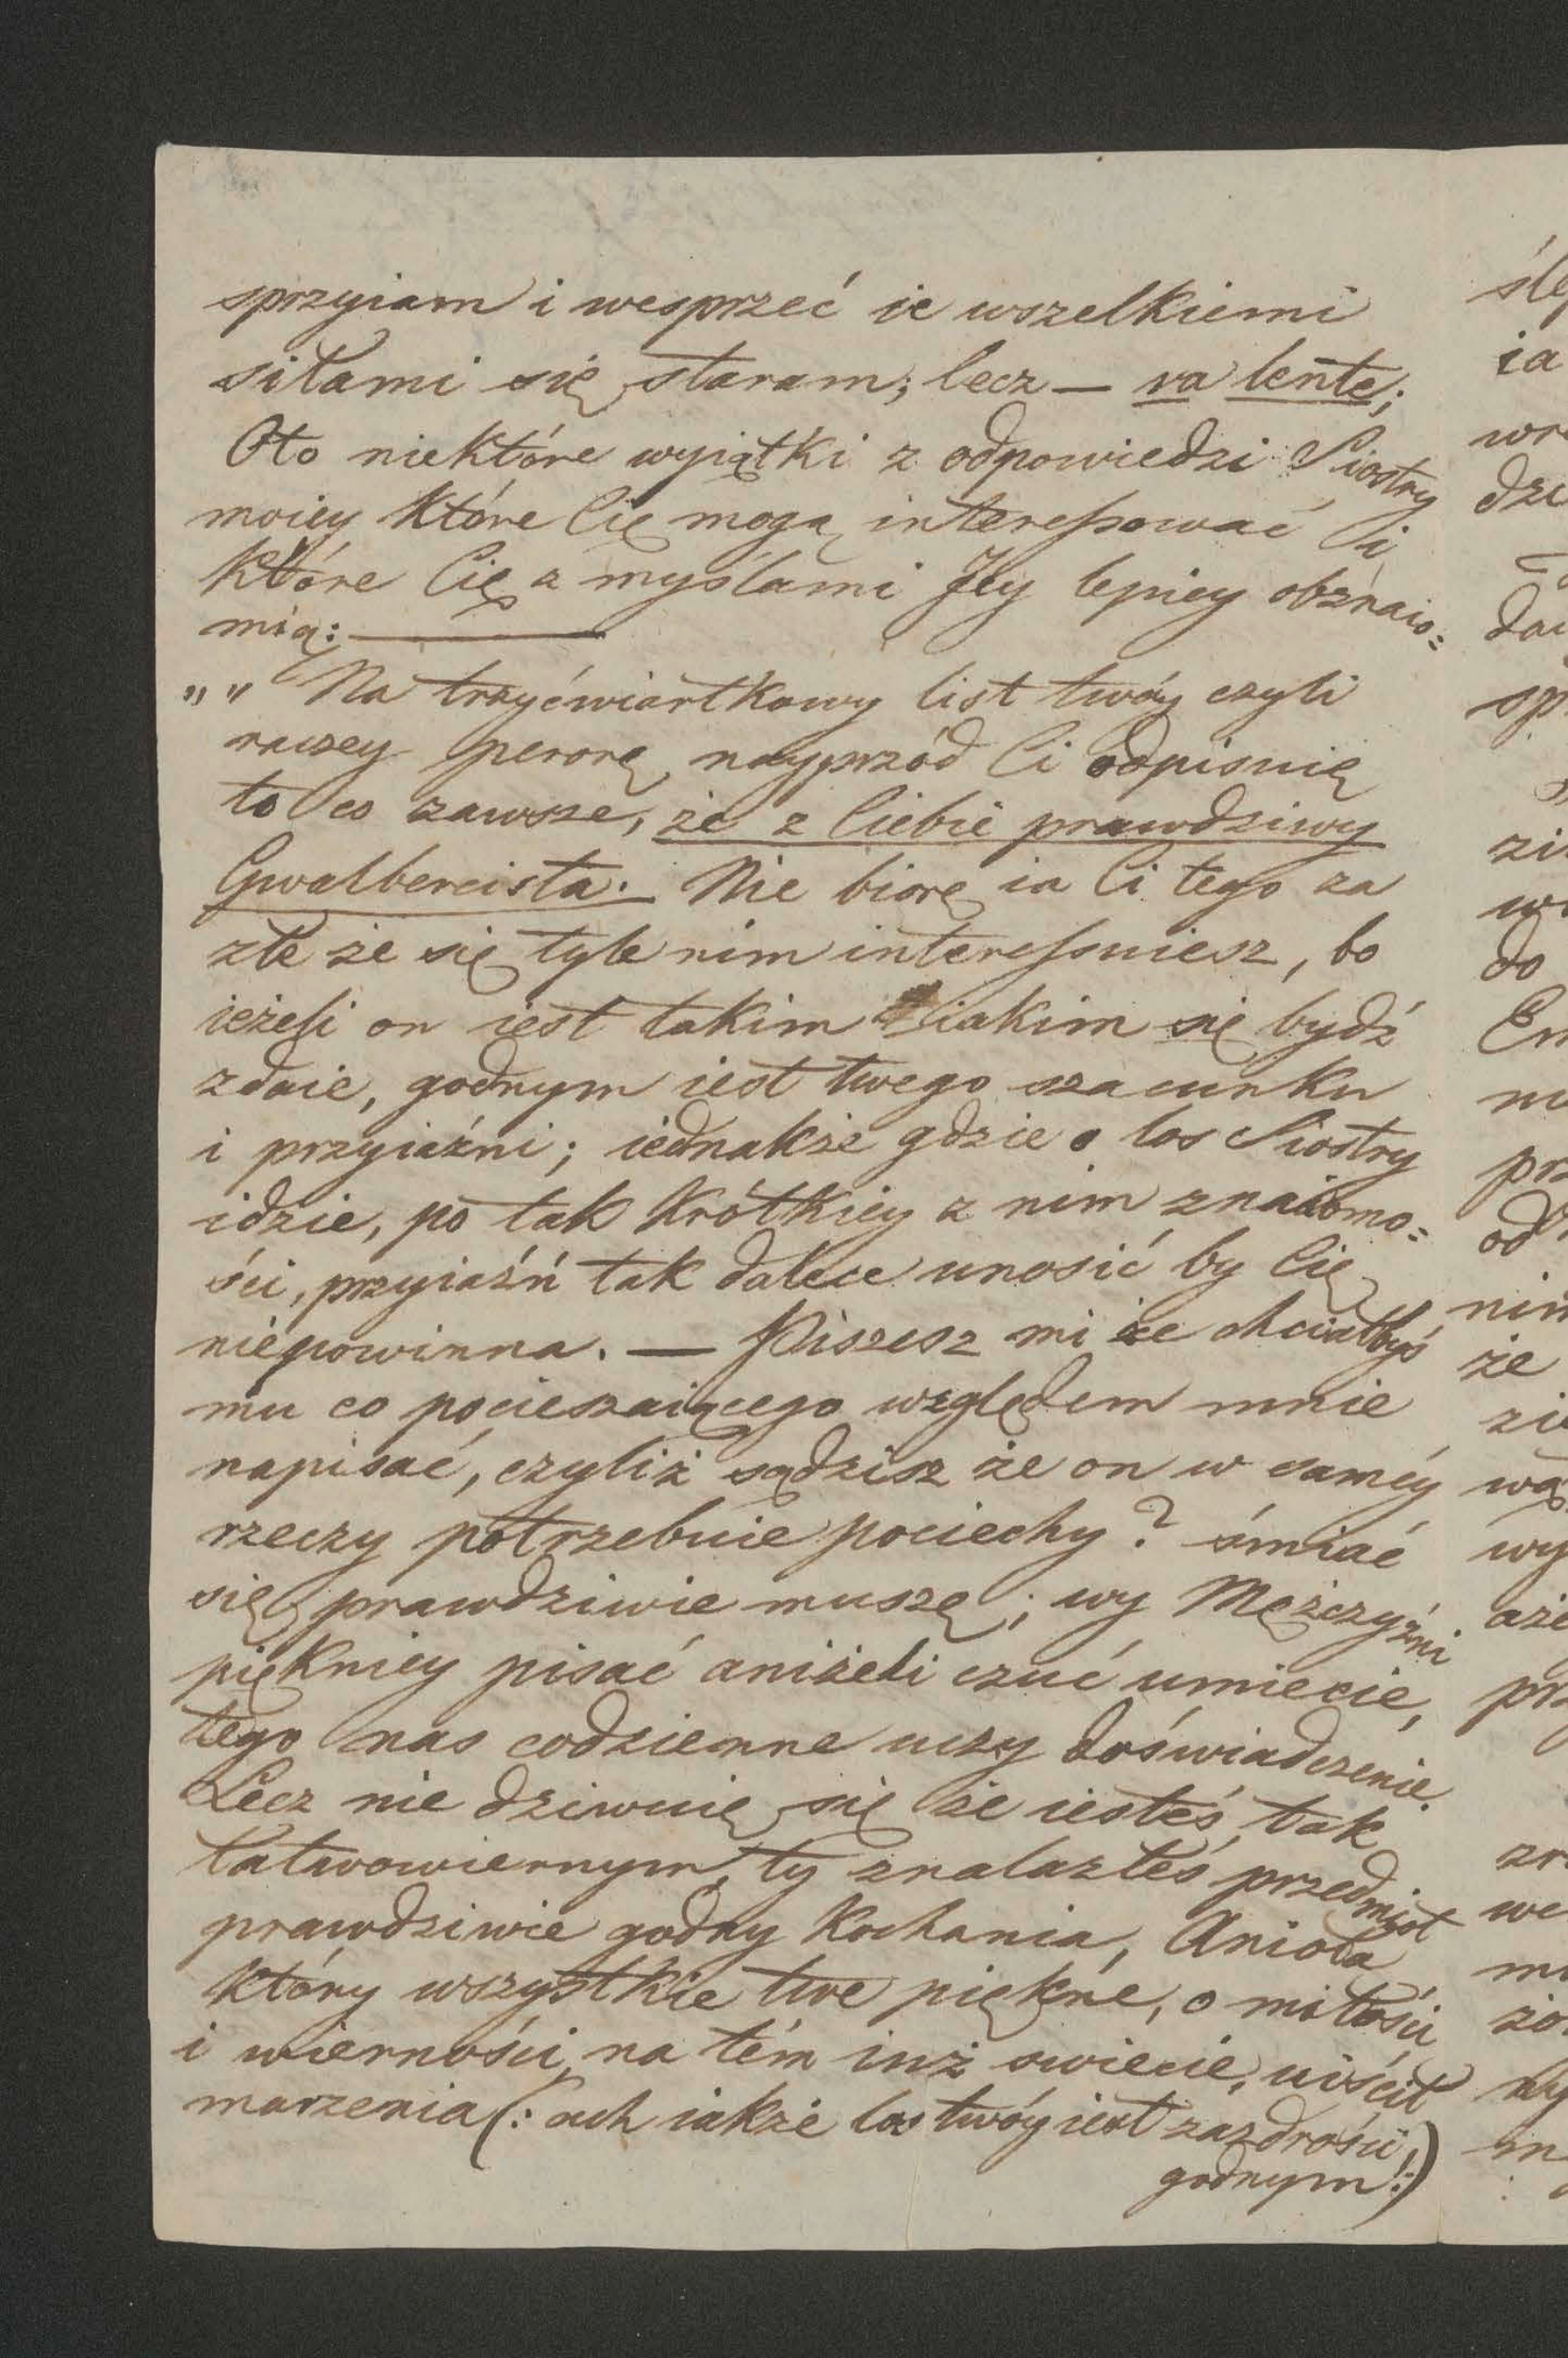 sprzyiam i wesprzeć ie wszelkiemi
siłami się staram; lecz — va lente;
Oto niektóre wyiątki z odpowiedzi Siostry
moiey które Cię mogą interessować i
które Cię z myślami Jey lepiey obznaio=
mią: —
„„ Na trzyćwiartkowy list twóy czyli
raczey perorę, nayprzód Ci odpisuię
to co zawsze, że z Ciebie prawdziwy
Gwalbercista. Nie biorę ia Ci tego za
złe że się tyle nim interessuiesz, bo
ieżeli on iest takim iakim się bydź
zdaie, godnym iest twego szacunku
i przyiaźni; iednakże gdzie o los Siostry
idzie, po tak krótkiey z nim znaiomo=
ści, przyiaźń tak dalece unosić by Cię
niepowinna. — Piszesz mi że chciałbyś
mu co pocieszaiącego względem mnie
napisać, czyliż sądzisz że on w saméy
rzeczy potrzebuie pociechy? śmiać
się prawdziwie muszę; wy Mężczyźni
piękniey pisać aniżeli czuć umiecie,
tego nas codzienne uczy doświadczenie.
Lecz nie dziwuię się że iesteś tak
łatwowiernym, ty znalazłeś przedmiot
prawdziwie godny kochania, Anioła
który wszystkie twe piękne, o miłości
i wierności na tém iuż swiecie, uiścił
marzenia (: ach iakże los twóy iest zazdrości
godnym!:)
śle
ia
wr
dzi
spr
zi
do
że
pr
od
nim
we